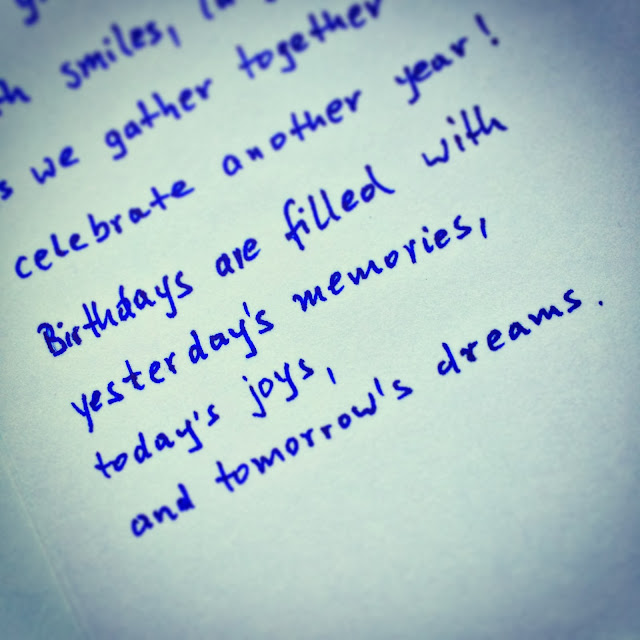 smiles,
we gather together
celebrate another year!
Birthdays are filled with
yesterday's memories,
today's joys,
and tomorrow's dreams.